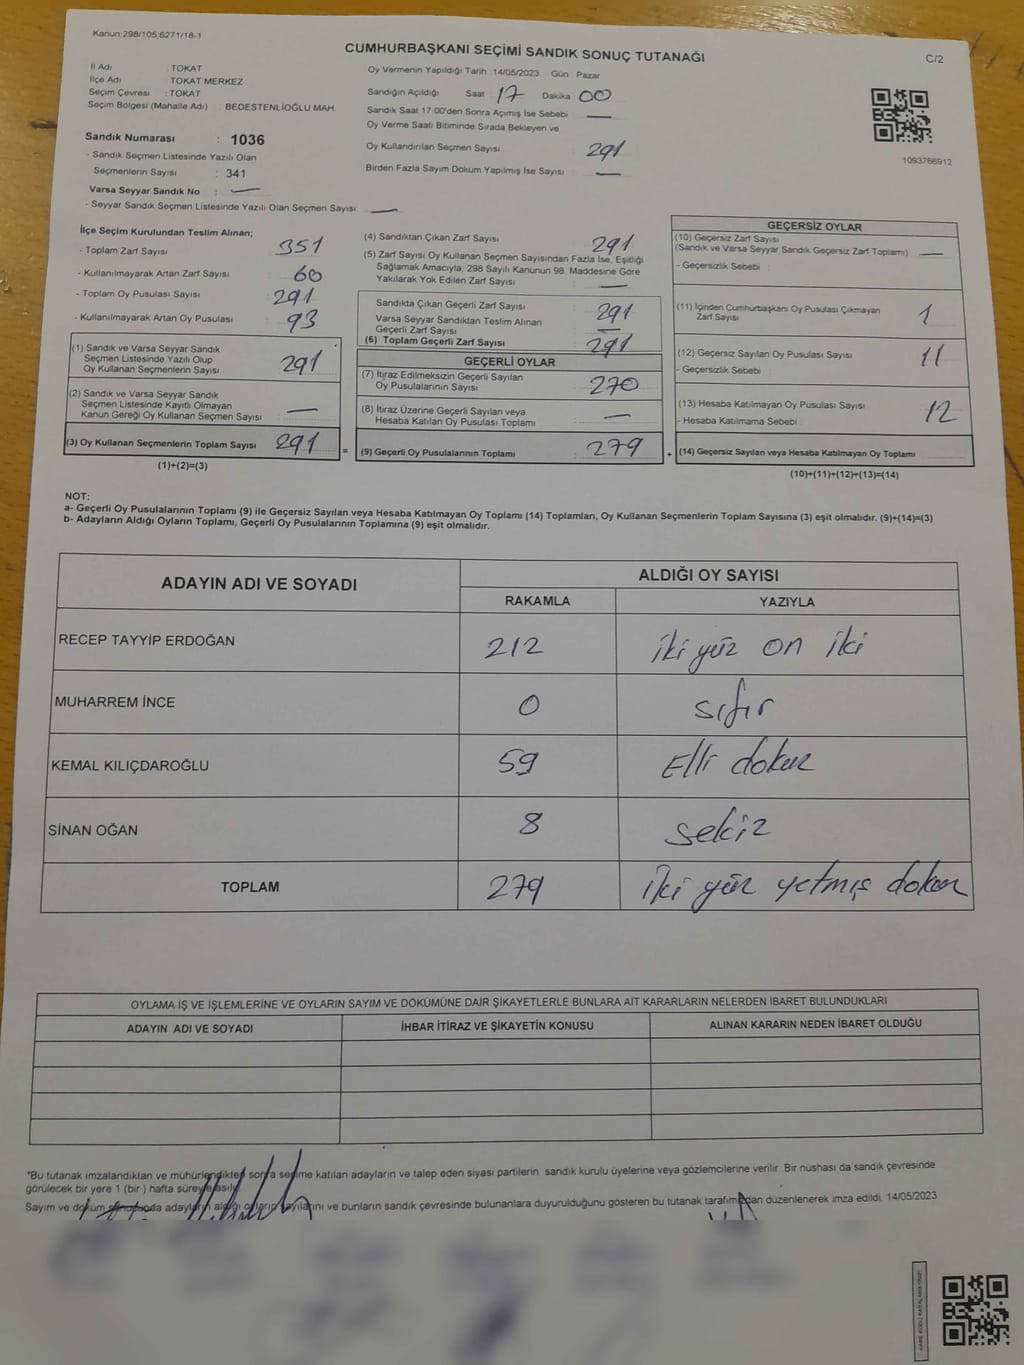 Kanun:298/105,6271/18-1
CUMHURBAŞKANI SEÇİMİ SANDIK SONUÇ TUTANAĞI
C/2
İl Adı : TOKAT
İlçe Adı : TOKAT MERKEZ
Seçim Çevresi : TOKAT
Seçim Bölgesi (Mahalle Adı) : BEDESTENLİOĞLU MAH.
Sandık Numarası : 1036
- Sandık Seçmen Listesinde Yazılı Olan
Seçmenlerin Sayısı : 341
Varsa Seyyar Sandık No : —
- Seyyar Sandık Seçmen Listesinde Yazılı Olan Seçmen Sayısı: —
Oy Vermenin Yapıldığı Tarih : 14/05/2023 Gün Pazar
Sandığın Açıldığı Saat 17 Dakika 00
Sandık Saat 17:00'den Sonra Açımış İse Sebebi —
Oy Verme Saati Bitiminde Sırada Bekleyen ve
Oy Kullandırılan Seçmen Sayısı 291
Birden Fazla Sayım Döküm Yapılmış İse Sayısı —
1093766912
İlçe Seçim Kurulundan Teslim Alınan;
- Toplam Zarf Sayısı : 351
- Kullanılmayarak Artan Zarf Sayısı : 60
- Toplam Oy Pusulası Sayısı : 291
- Kullanılmayarak Artan Oy Pusulası : 93
(1) Sandık ve Varsa Seyyar Sandık
Seçmen Listesinde Yazılı Olup
Oy Kullanan Seçmenlerin Sayısı 291
(2) Sandık ve Varsa Seyyar Sandık
Seçmen Listesinde Kayıtlı Olmayan
Kanun Gereği Oy Kullanan Seçmen Sayısı —
(3) Oy Kullanan Seçmenlerin Toplam Sayısı 291
(1)+(2)=(3)
(4) Sandıktan Çıkan Zarf Sayısı 291
(5) Zarf Sayısı Oy Kullanan Seçmen Sayısından Fazla İse, Eşitliği
Sağlamak Amacıyla; 298 Sayılı Kanunun 98. Maddesine Göre
Yakılarak Yok Edilen Zarf Sayısı : —
Sandıkta Çıkan Geçerli Zarf Sayısı 291
Varsa Seyyar Sandıktan Teslim Alınan
Geçerli Zarf Sayısı —
(6) Toplam Geçerli Zarf Sayısı : 291
GEÇERLİ OYLAR
(7) İtiraz Edilmeksizin Geçerli Sayılan
Oy Pusulalarının Sayısı : 270
(8) İtiraz Üzerine Geçerli Sayılan veya
Hesaba Katılan Oy Pusulası Toplamı : —
= (9) Geçerli Oy Pusulalarının Toplamı : 279
GEÇERSİZ OYLAR
(10) Geçersiz Zarf Sayısı
(Sandık ve Varsa Seyyar Sandık Geçersiz Zarf Toplamı) : —
- Geçersizlik Sebebi :
(11) İçinden Cumhurbaşkanı Oy Pusulası Çıkmayan
Zarf Sayısı : 1
(12) Geçersiz Sayılan Oy Pusulası Sayısı : 11
- Geçersizlik Sebebi :
(13) Hesaba Katılmayan Oy Pusulası Sayısı : 12
- Hesaba Katılmama Sebebi :
+ (14) Geçersiz Sayılan veya Hesaba Katılmayan Oy Toplamı
(10)+(11)+(12)+(13)=(14)
NOT:
a- Geçerli Oy Pusulalarının Toplamı (9) ile Geçersiz Sayılan veya Hesaba Katılmayan Oy Toplamı (14) Toplamları, Oy Kullanan Seçmenlerin Toplam Sayısına (3) eşit olmalıdır. (9)+(14)=(3)
b- Adayların Aldığı Oyların Toplamı, Geçerli Oy Pusulalarının Toplamına (9) eşit olmalıdır.
ADAYIN ADI VE SOYADI
ALDIĞI OY SAYISI
RAKAMLA YAZIYLA
RECEP TAYYİP ERDOĞAN 212 iki yüz on iki
MUHARREM İNCE 0 sıfır
KEMAL KILIÇDAROĞLU 59 Elli dokuz
SİNAN OĞAN 8 sekiz
TOPLAM 279 iki yüz yetmiş dokuz
OYLAMA İŞ VE İŞLEMLERİNE VE OYLARIN SAYIM VE DÖKÜMÜNE DAİR ŞİKAYETLERLE BUNLARA AİT KARARLARIN NELERDEN İBARET BULUNDUKLARI
ADAYIN ADI VE SOYADI İHBAR İTİRAZ VE ŞİKAYETİN KONUSU ALINAN KARARIN NEDEN İBARET OLDUĞU
*Bu tutanak imzalandıktan ve mühürlendikten sonra seçime katılan adayların ve talep eden siyasi partilerin sandık kurulu üyelerine veya gözlemcilerine verilir. Bir nüshası da sandık çevresinde
görülecek bir yere 1 (bir ) hafta süreyle asılır.
Sayım ve döküm sonucunda adayların aldığı oyların sayılarını ve bunların sandık çevresinde bulunanlara duyurulduğunu gösteren bu tutanak tarafımızdan düzenlenerek imza edildi. 14/05/2023